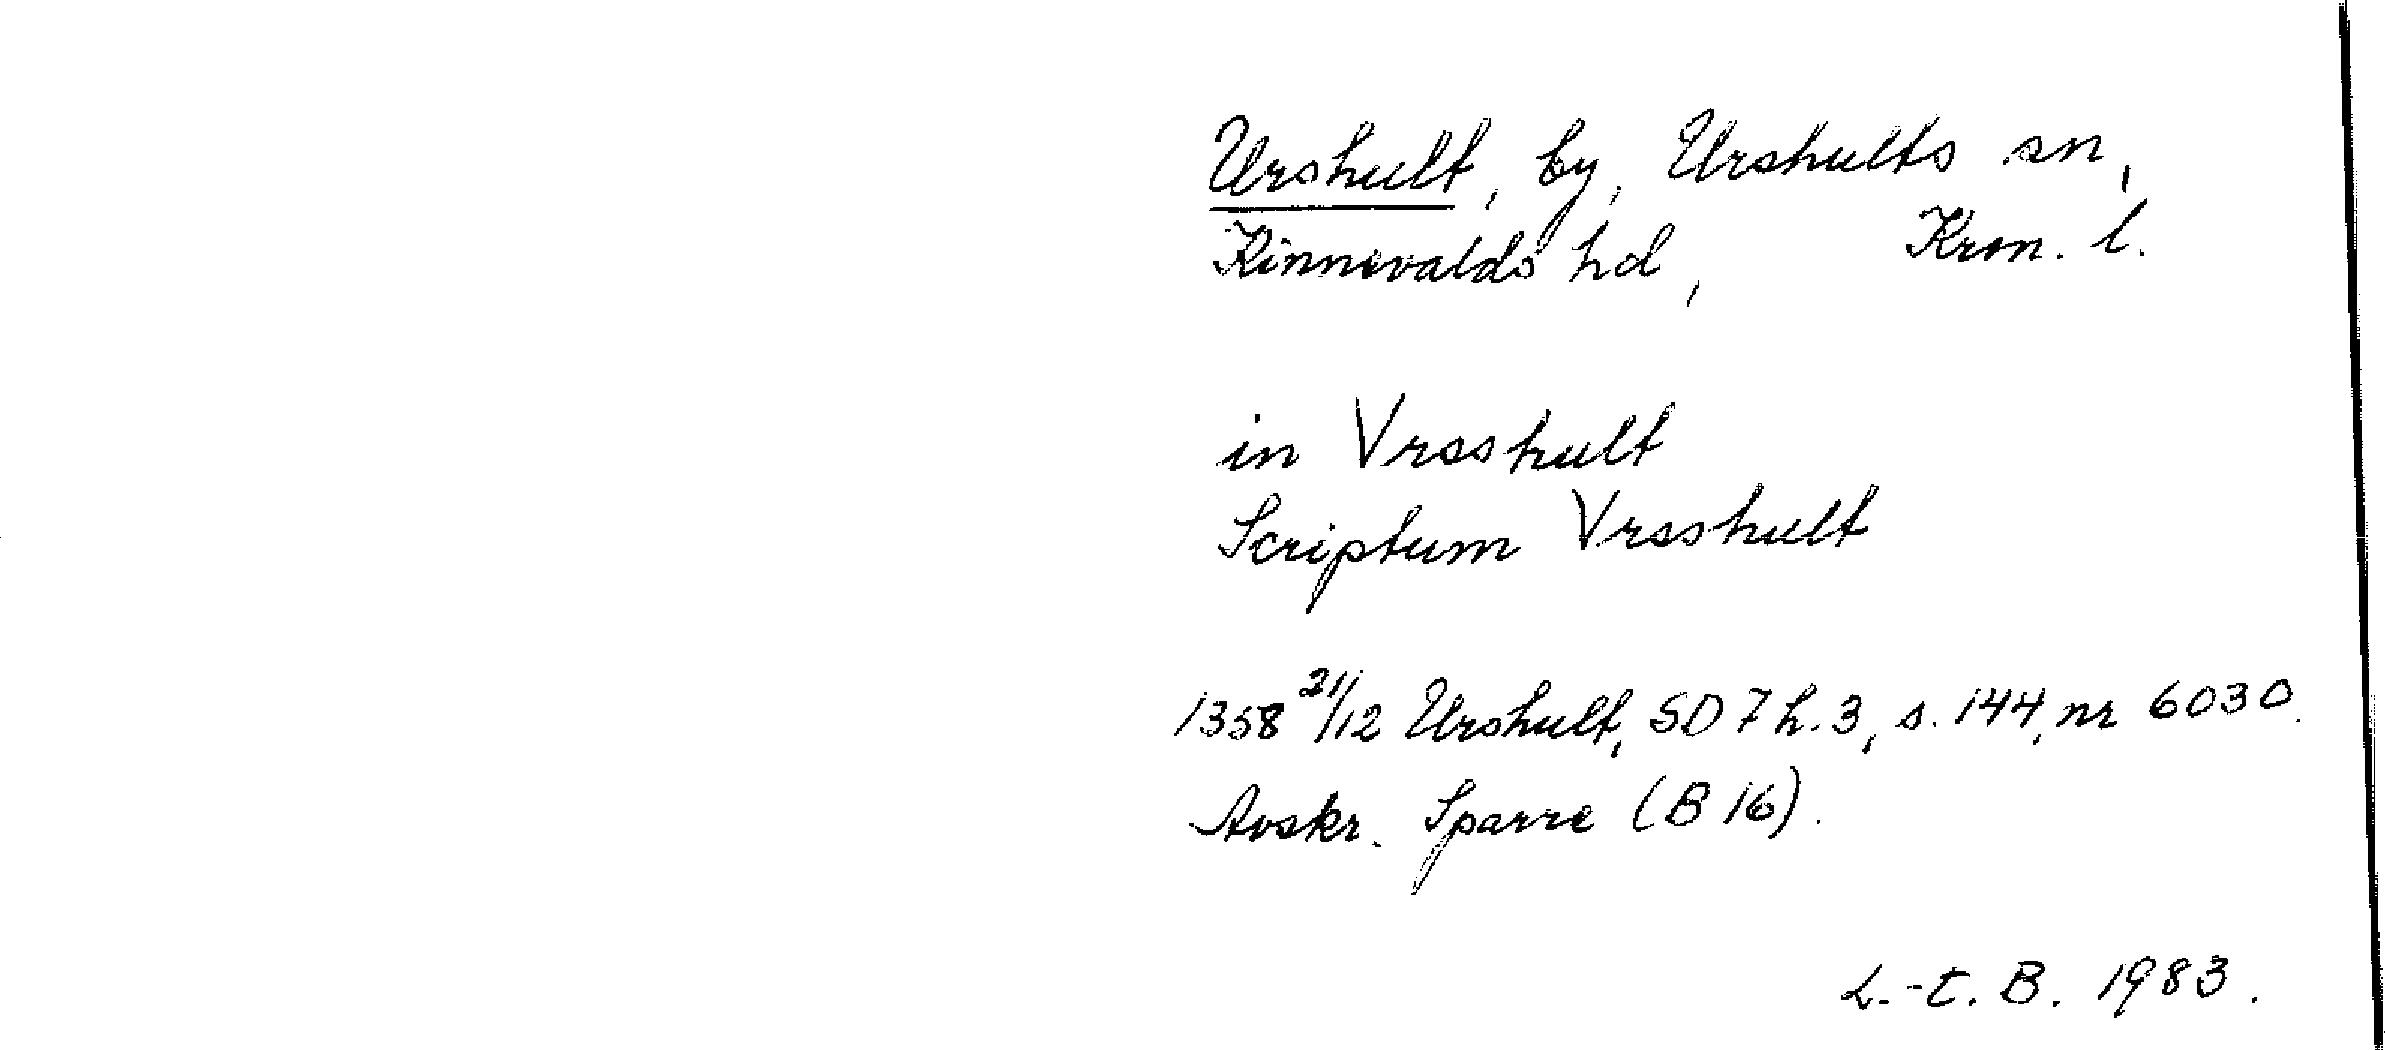 Urshult, by, Urshults sn,
Kinnevalds hd, Kron. l.
in Vrsshult
Scriptum Vrsshult
1358 21/12 Urshult, SD 7 h. 3, s. 144, nr 6030.
Avskr. Sparre (B 16).
L.-E. B. 1983.